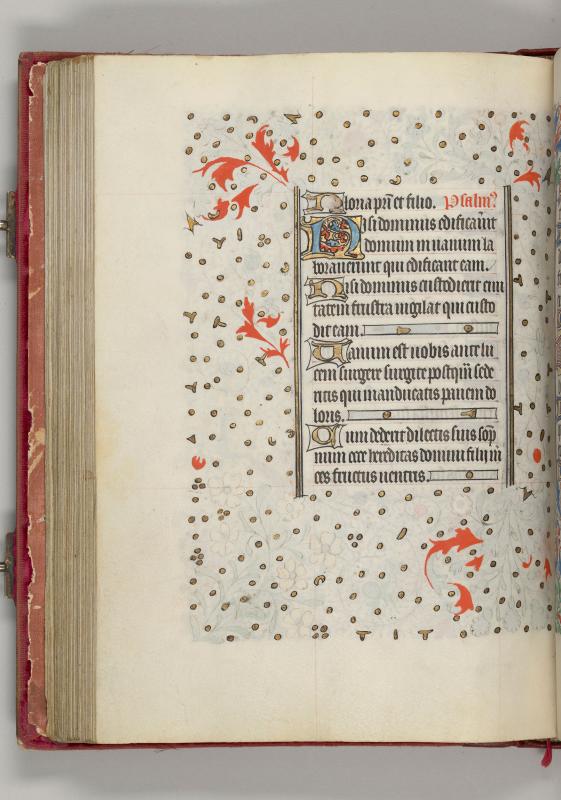 Gloria pr̃i et filio. Psalm9
Nisi dominus edificaũit
domum in uanum la
borauerunt qui edificant eam.
Nisi dominus custodierit ciui
tatem frustra uigilat qui custo
dit eam.
Uanum est uobis ante lu
cem surgere surgite postq̃m sede
ritis qui manducatis panem do
loris.
Cum dederit dilectis suis sop̃
num ecce hereditas domini filij m̃
ces fructus uentris.